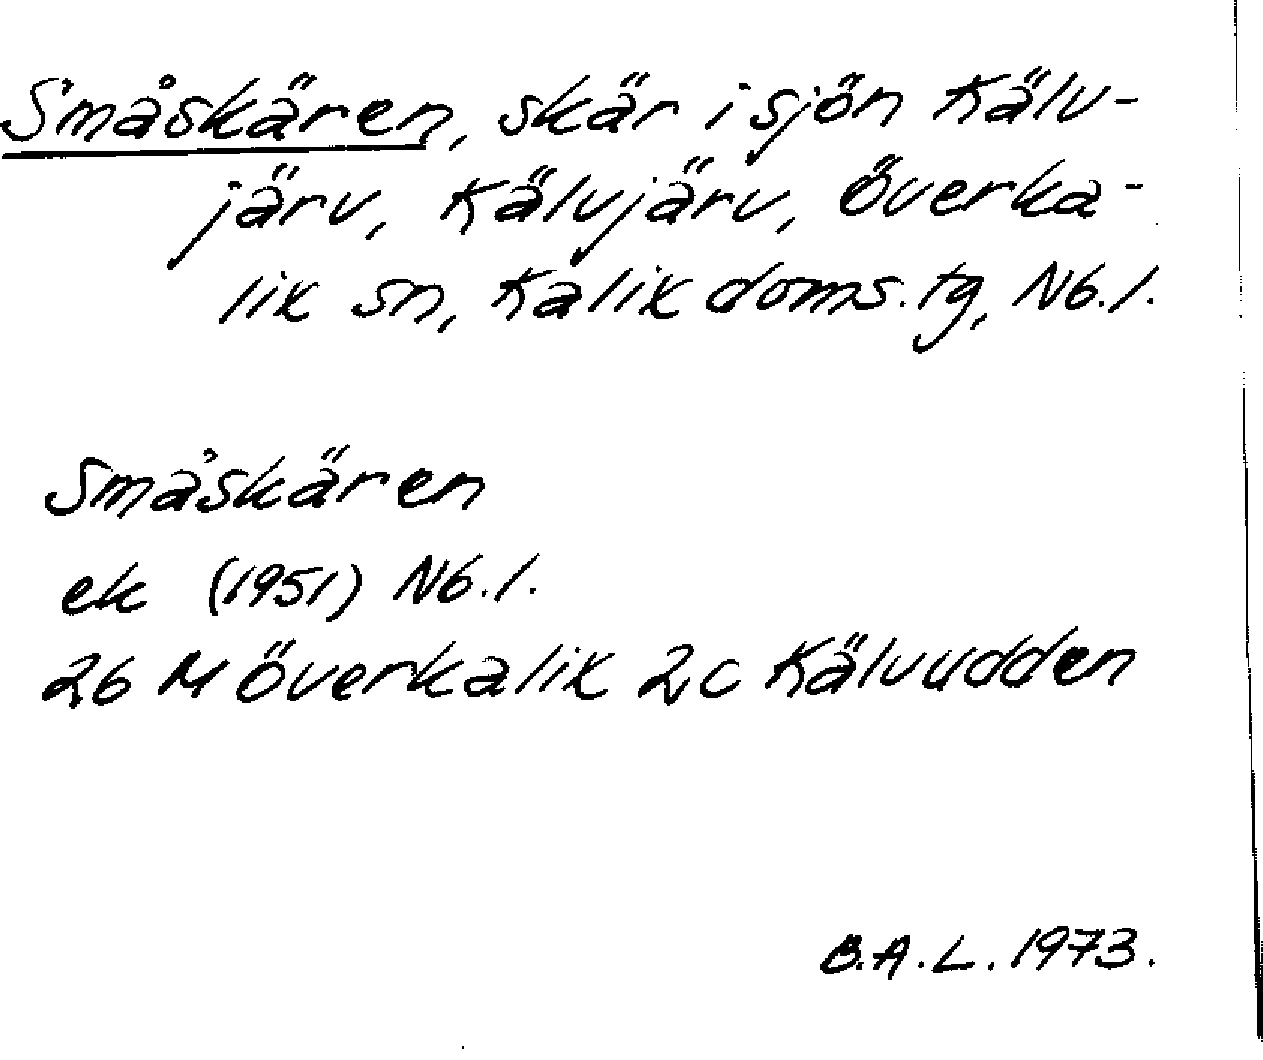 Småskären, skär i sjön Kälv-
järv, Kälvjärv, Överka-
lix sn, Kalix doms. tg, Nb. l.
Småskären
ek (1951) Nb. l.
26 M Överkalix 2c Kälvudden
B.A.L. 1973.